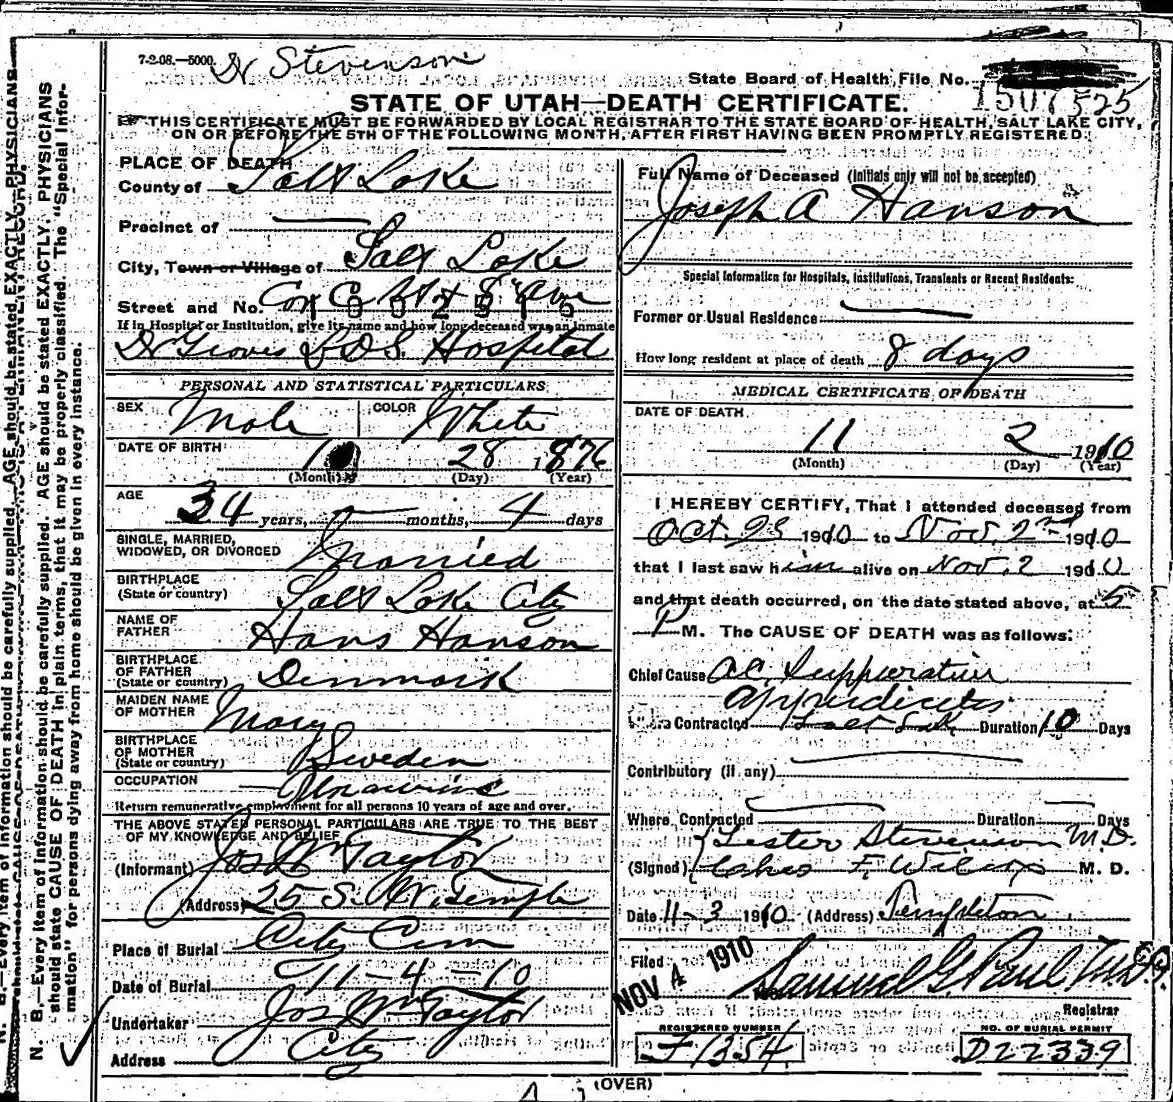 7-2-08.—5000. Dr Stevenson
State Board of Health File No.
1507525
STATE OF UTAH—DEATH CERTIFICATE.
THIS CERTIFICATE MUST BE FORWARDED BY LOCAL REGISTRAR TO THE STATE BOARD OF HEALTH, SALT LAKE CITY,
ON OR BEFORE THE 5TH OF THE FOLLOWING MONTH, AFTER FIRST HAVING BEEN PROMPTLY REGISTERED.
PLACE OF DEATH
County of Salt Lake
Precinct of
City, Town or Village of Salt Lake
Street and No. Cor C St & 8" Ave
1002516
If in Hospital or Institution, give its name and how long deceased was an inmate
Dr Groves L.D.S. Hospital
PERSONAL AND STATISTICAL PARTICULARS
SEX Male COLOR White
DATE OF BIRTH 10 28 1876
(Month) (Day) (Year)
AGE 34 years, — months, 4 days
SINGLE, MARRIED,
WIDOWED, OR DIVORCED Married
BIRTHPLACE
(State or country) Salt Lake City
NAME OF
FATHER Hans Hanson
BIRTHPLACE
OF FATHER
(State or country) Denmark
MAIDEN NAME
OF MOTHER Mary
BIRTHPLACE
OF MOTHER
(State or country) Sweden
OCCUPATION
Return remunerative employment for all persons 10 years of age and over.
THE ABOVE STATED PERSONAL PARTICULARS ARE TRUE TO THE BEST
OF MY KNOWLEDGE AND BELIEF.
(Informant) Jos Wm Taylor
(Address) 25 S. W. Temple
Place of Burial City Cem
Date of Burial 11-4-10
Undertaker Jos Wm Taylor
Address City
Full Name of Deceased (Initials only will not be accepted)
Joseph A Hanson
Special Information for Hospitals, Institutions, Transients or Recent Residents:
Former or Usual Residence
How long resident at place of death 8 days
MEDICAL CERTIFICATE OF DEATH
DATE OF DEATH
11 2 1910
(Month) (Day) (Year)
I HEREBY CERTIFY, That I attended deceased from
Oct. 23 1910 to Nov. 2nd 1910
that I last saw him alive on Nov. 2 1910
and that death occurred, on the date stated above, at 5
P M. The CAUSE OF DEATH was as follows:
Chief Cause Ac. Suppurative
appendicitis
Contracted Salt Lake Duration 10 Days
Contributory (if any)
Where Contracted Duration Days
Lester Stevenson M.D.
(Signed) M. D.
Date 11-3 1910 (Address) Templeton
Filed NOV 4 1910 Samuel G. Paul M.D.
Registrar
REGISTERED NUMBER
F1354
NO. OF BURIAL PERMIT
D22339
(OVER)
N. B.—Every item of information should be carefully supplied. AGE should be stated EXACTLY. PHYSICIANS
should state CAUSE OF DEATH in plain terms, that it may be properly classified. The "Special Infor-
mation" for persons dying away from home should be given in every instance.